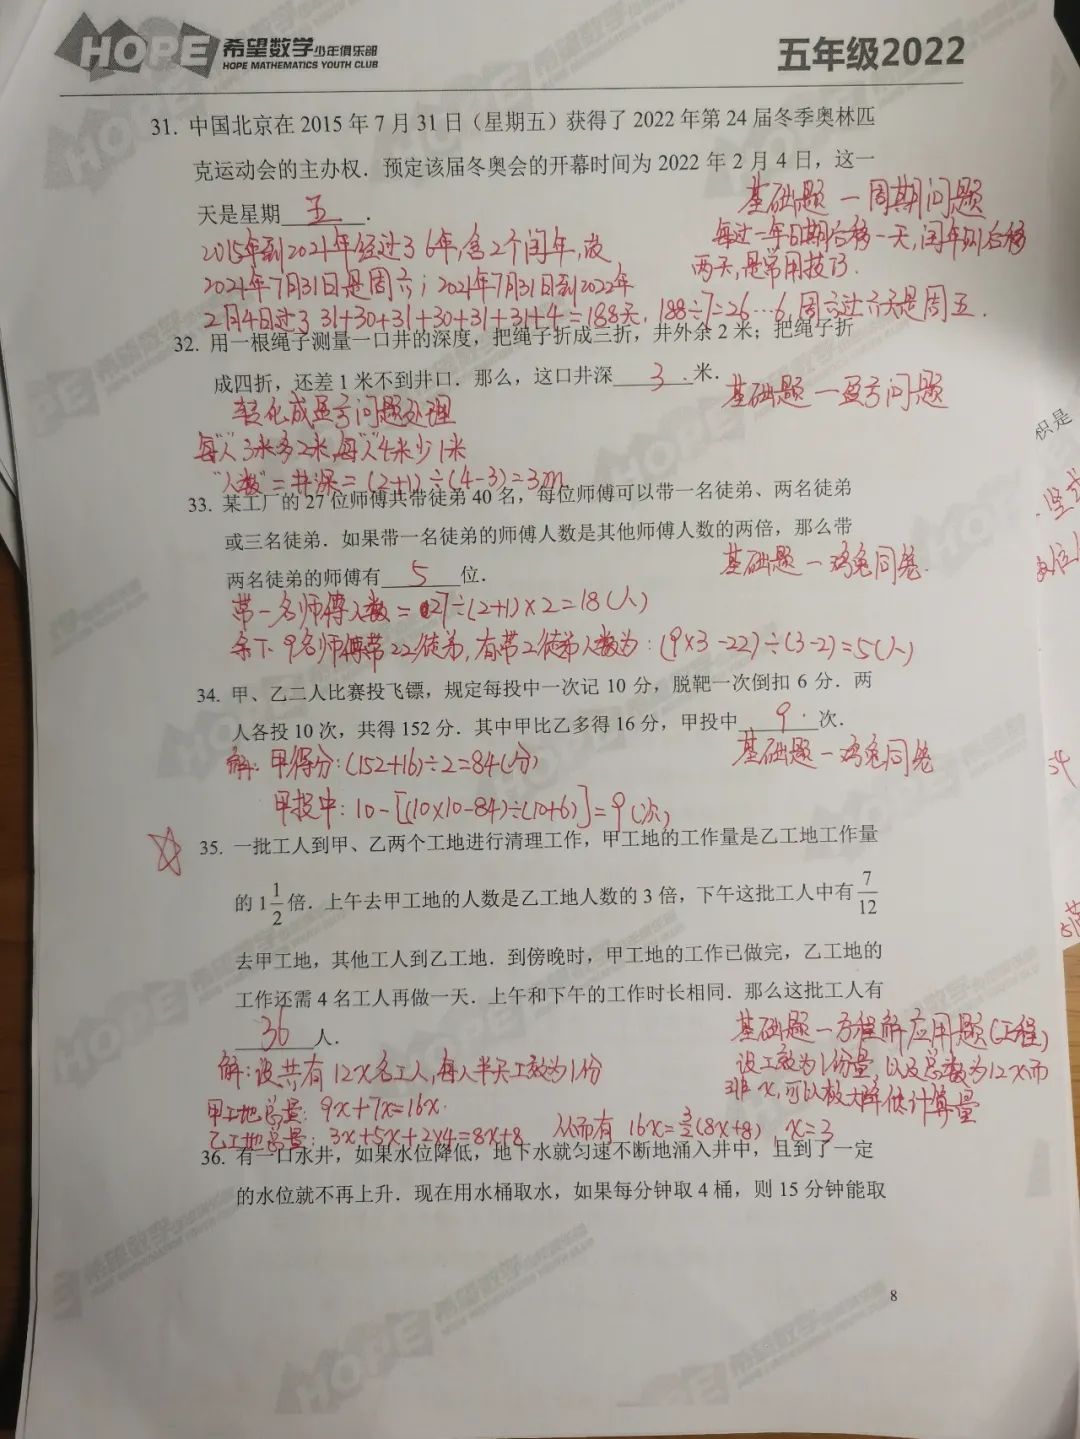 HOPE 希望数学少年俱乐部
HOPE MATHEMATICS YOUTH CLUB
五年级2022
31. 中国北京在 2015 年 7 月 31 日（星期五）获得了 2022 年第 24 届冬季奥林匹
克运动会的主办权．预定该届冬奥会的开幕时间为 2022 年 2 月 4 日，这一
天是星期 五 ．
基础题—周期问题
每过一年日期后移一天,闰年则后移
两天,是常用技巧.
2015年到2021年经过了6年,含2个闰年,故
2021年7月31日是周六；2021年7月31日到2022年
2月4日过了 31+30+31+30+31+31+4=188天, 188÷7=26…6, 周六过六天是周五.
32. 用一根绳子测量一口井的深度，把绳子折成三折，井外余 2 米；把绳子折
成四折，还差 1 米不到井口．那么，这口井深 3 米．
基础题—盈亏问题
转化成盈亏问题处理
每"人"3米多2米,每"人"4米少1米
"人数"=井深=(2+1)÷(4-3)=3m
33. 某工厂的 27 位师傅共带徒弟 40 名，每位师傅可以带一名徒弟、两名徒弟
或三名徒弟．如果带一名徒弟的师傅人数是其他师傅人数的两倍，那么带
两名徒弟的师傅有 5 位．
基础题—鸡兔同笼.
带一名师傅人数=27÷(2+1)×2=18(人)
余下9名师傅带22徒弟,有带2徒弟人数为：(9×3-22)÷(3-2)=5(人)
34. 甲、乙二人比赛投飞镖，规定每投中一次记 10 分，脱靶一次倒扣 6 分．两
人各投 10 次，共得 152 分．其中甲比乙多得 16 分，甲投中 9 次．
基础题—鸡兔同笼
解: 甲得分:(152+16)÷2=84(分)
甲投中: 10-[(10×10-84)÷(10+6)]=9(次)
35. 一批工人到甲、乙两个工地进行清理工作，甲工地的工作量是乙工地工作量
的 1 1/2 倍．上午去甲工地的人数是乙工地人数的 3 倍，下午这批工人中有 7/12
去甲工地，其他工人到乙工地．到傍晚时，甲工地的工作已做完，乙工地的
工作还需 4 名工人再做一天．上午和下午的工作时长相同．那么这批工人有
36 人．
基础题—方程解应用题(工程)
设工效为1份量,以及总数为12x而
非x,可以极大降低计算量
解:设共有12x名工人,每人半天工效为1份
甲工地总量: 9x+7x=16x.
乙工地总量: 3x+5x+2×4=8x+8 从而有 16x=3/2(8x+8) x=3
36. 有一口水井，如果水位降低，地下水就匀速不断地涌入井中，且到了一定
的水位就不再上升．现在用水桶取水，如果每分钟取 4 桶，则 15 分钟能取
8
积是